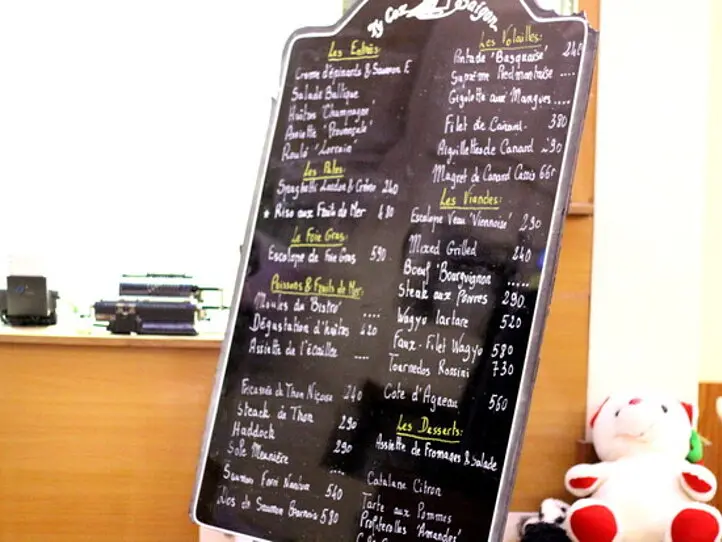 Ty Coz Saigon
Les Entrées
Crème d'épinards & Saumon F.
Salade Baltique
Huîtres 'Champagne'
Assiette 'Provençale'
Roulé 'Lorrain'
Les Pates:
Spaghetti Lardon & Crème 240
* Riso aux Fruits de Mer 480
Le Foie Gras:
Escalope de Foie Gras 590
Poissons & Fruits de Mer:
Moules du 'Bistro' ....
Dégustation d'huîtres 420
Assiette de l'écailler ....
Fricassée de Thon Niçoise 240
Steack de Thon 290
Haddock
Sole Meunière 290
Saumon 540
de Saumon 580
Les Volailles:
Pintade 'Basquaise' 240
Suprême Piedmontaise ....
Gigolette aux 'Mangues' ....
Filet de Canard 380
Aiguillettes de Canard 290
Magret de Canard Cassis 660
Les Viandes:
Escalope Veau 'Viennoise' 290
Mixed Grilled 240
Boeuf 'Bourguignon' ....
Steak aux Poivres 290
Wagyu Tartare 520
Faux-Filet Wagyu 580
Tournedos Rossini 730
Cote d'Agneau 560
Les Desserts:
Assiette de Fromages & Salade
Catalane Citron
Tarte aux Pommes
Profiterolles 'Amandes'